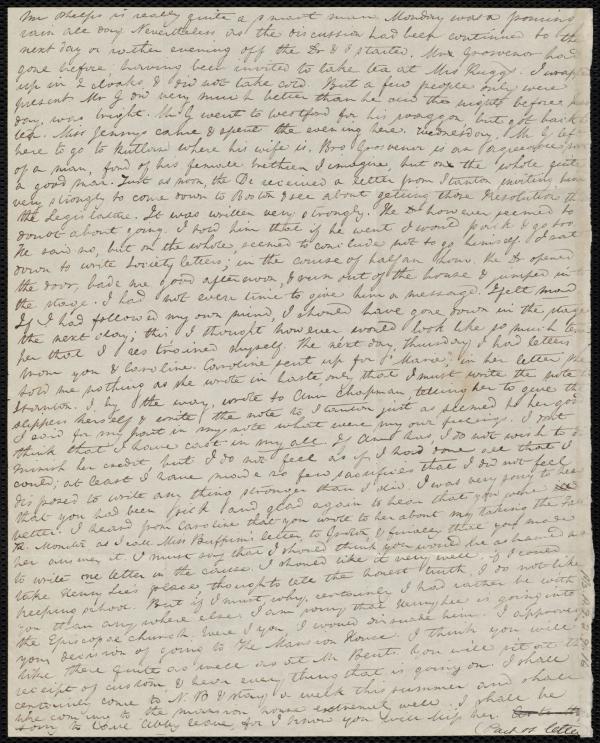 Mr Phelps is really quite a smart man. Monday was a pouring
rain all day. Nevertheless, as the discussion had been continued to the
next day or rather evening off the Dr & I started. Mrs Grosvenor had
gone before having been invited to take tea at Mrs Ruggs. I wrapped
up in 2 cloaks, & did not take cold. But a few people only were
present Mr G did very much better than he did the nights before
day, was bright. Mr G went to Westford for his waggon, but got back to
tea. Miss Jennys came & spent the evening here. Wednesday, Mr G left
here to go to Rutland where his wife is. Bro' Grosvenor is an agreeable sort
of a man, fond of his female brethren I imagine, but on the whole quite
a good man. Just as noon, the Dr received a letter from Stanton inviting him
very strongly to come down to Boston & see about getting those Resolutions thro
the Legislature. It was written very strongly. The Dr however seemed to
doubt about going. I told him that if he went I would pack & go too
He said no, but on the whole, seemed to conclude not to go himself. I sat
down to write Society letters; in the course of half an hour, the Dr opened
the door, bade me good afternoon, & run out of the house & jumped into
the stage. I had not even time to give him a message. I felt mad
If I had followed my own mind, I should have gone down in the stage
the next day; this I thought however would look like so much temper
that I restrained myself. The next day, Thursday, I had letters
from you & Caroline. Caroline sent up for "Mara"; in her letter she
told me nothing as she wrote in haste only that I must write the note to
Stanton. I, by the way, wrote to Ann Chapman, telling her to give the
slippers herself & write the note to Stanton just as seemed to her good
I said for my part in my note what were my own feelings. I don't
think that I have cast in my all, if Ann has, I do not wish to di-
minish her credit, but I do not feel as if I had done all that I
could; at least I have made so few sacrifices that I did not feel
disposed to write any thing stronger than I did. I was very sorry to hear
that you had been sick and glad again to hear that you were
better. I heard from Caroline that you wrote to her about my taking the
The Monster as I call Miss Buffum's letter, to Groton & finally that you made
her answer it. I must say that I should think you would be ashamed as
to write one letter in the cause. I should like it very well, if I could
take Henry Lee's place, though to tell the honest truth, I do not like
keeping school. But if I must, why, certainly I had rather be with
you than any where else. I am sorry that Henry Lee is going into
the Episcopal church. Were I you I would dissuade him. I approve
your decision of going to the Mansion House. I think you will
like there quite as well as at Mr Bents. You will sit at the
receipt of custom, & hear every thing that is going on. I shall
certainly come to N.B & stay a week this summer and shall
like coming to the mansion house extremely well. I shall be
sorry to have Abby leave, for I know you will miss her.
(Part of letter